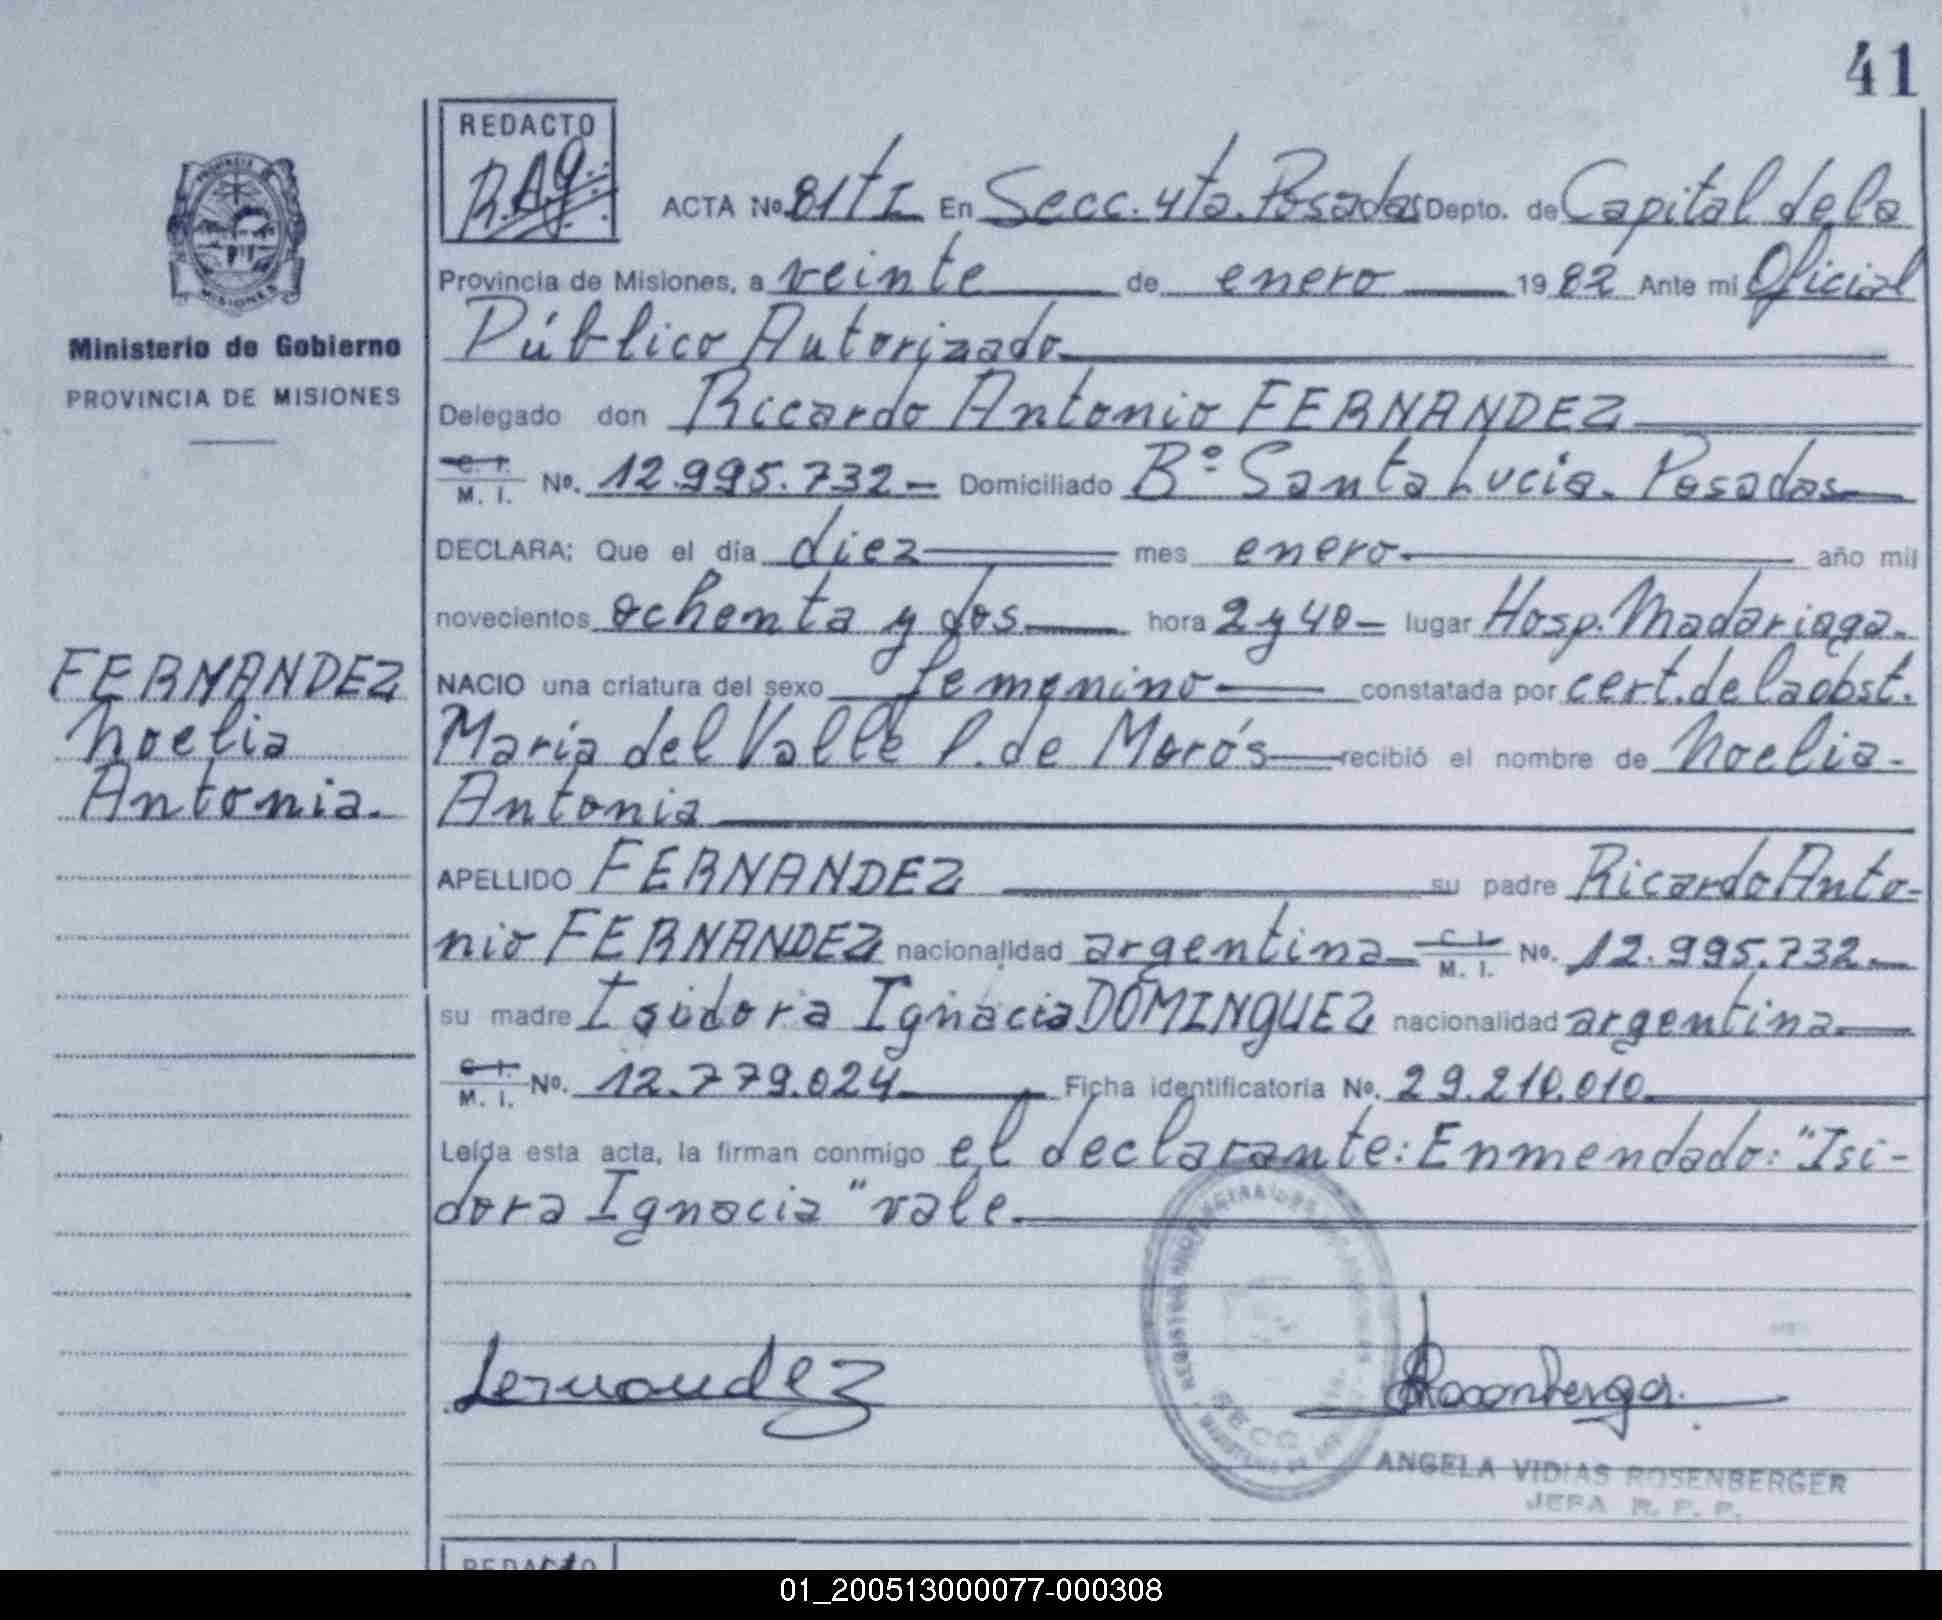 41
REDACTO
R.A.G.
ACTA No. 81 t I En Secc. 4ta. Posadas Depto. de Capital de la
Provincia de Misiones, a veinte de enero 1982 Ante mi Oficial
Público Autorizado
Ministerio de Gobierno
PROVINCIA DE MISIONES
Delegado don Ricardo Antonio FERNANDEZ
C. I. M. I. No. 12.995.732 - Domiciliado Bº Santa Lucia. Posadas
DECLARA: Que el día diez mes enero año mil
novecientos ochenta y dos hora 2 y 40 - lugar Hosp. Madariaga.
FERNANDEZ
Noelia
Antonia.
NACIO una criatura del sexo femenino constatada por cert. de la obst.
María del Valle P. de Morós recibió el nombre de Noelia
Antonia
APELLIDO FERNANDEZ su padre Ricardo Anto-
nio FERNANDEZ nacionalidad argentina C. I. M. I. No. 12.995.732
su madre Isidora Ignacia DOMINGUEZ nacionalidad argentina
C. I. M. I. No. 12.779.024 Ficha identificatoria No. 29.210.010
Leída esta acta, la firman conmigo el declarante: Enmendado: "Isi-
dora Ignacia" vale
Fernandez
Rosenberger
SECC.
ANGELA VIDIAS ROSENBERGER
JEFA R. P. P.
REDACTO
01_200513000077-000308